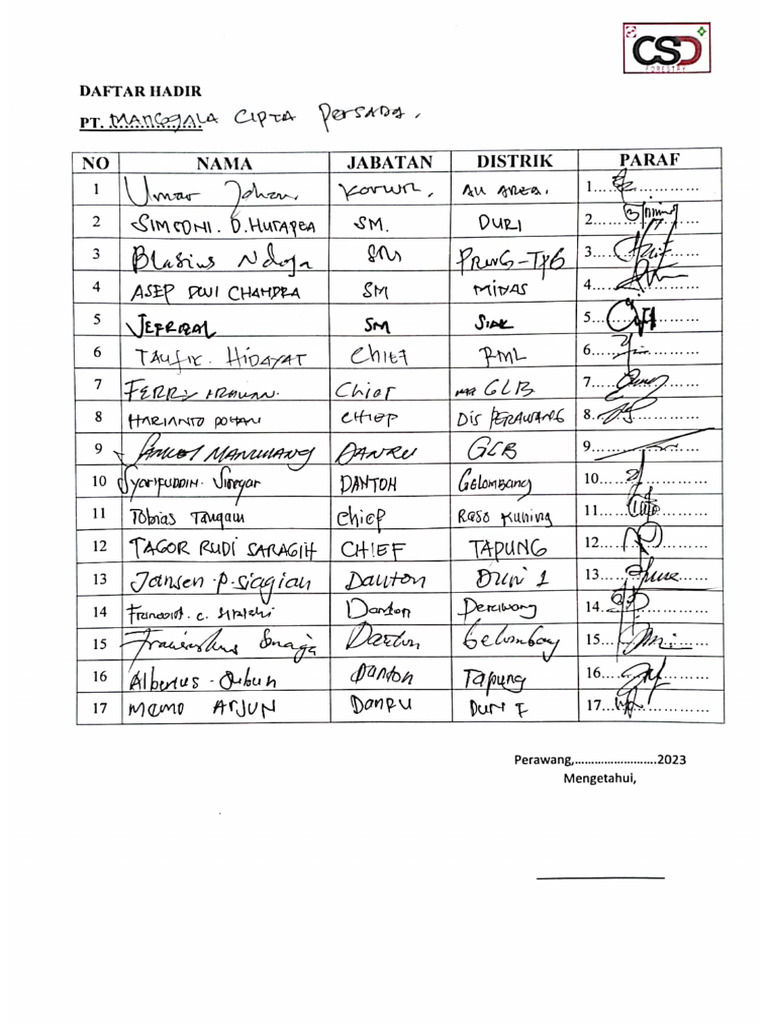 CSD
FORESTRY
DAFTAR HADIR
PT. MANGGALA CIPTA PERSADA.
NO NAMA JABATAN DISTRIK PARAF
1 Umar Johan. Korwil. All AREA. 1
2 SIMSONI. D. HUTAPEA SM. DURI 2
3 Blasius Ndoja SM PRWG-TPG 3
4 ASEP DWI CHANDRA SM MINAS 4
5 JEFRIZAL SM SIAK 5
6 TAUFIK. HIDAYAT Chief RML 6
7 FERRY IRAWAN. Chief GLB 7
8 HARIANTO POHAN CHIEF DIS PERAWANG 8
9 MANURUNG DANRU GLB 9
10 Syarifuddin. Siregar DANTON Gelombang 10
11 Tobias Tangam Chief Raso Kuning 11
12 TAGOR RUDI SARAGIH CHIEF TAPUNG 12
13 Jansen. P. Siagian Danton Duri 1 13
14 Danton Perawang 14
15 Fransiskus Sinaga Danton Gelombang 15
16 Albertus. Danton Tapung 16
17 MEMO ARJUN DANRU DURI I 17
Perawang,……………………2023
Mengetahui,